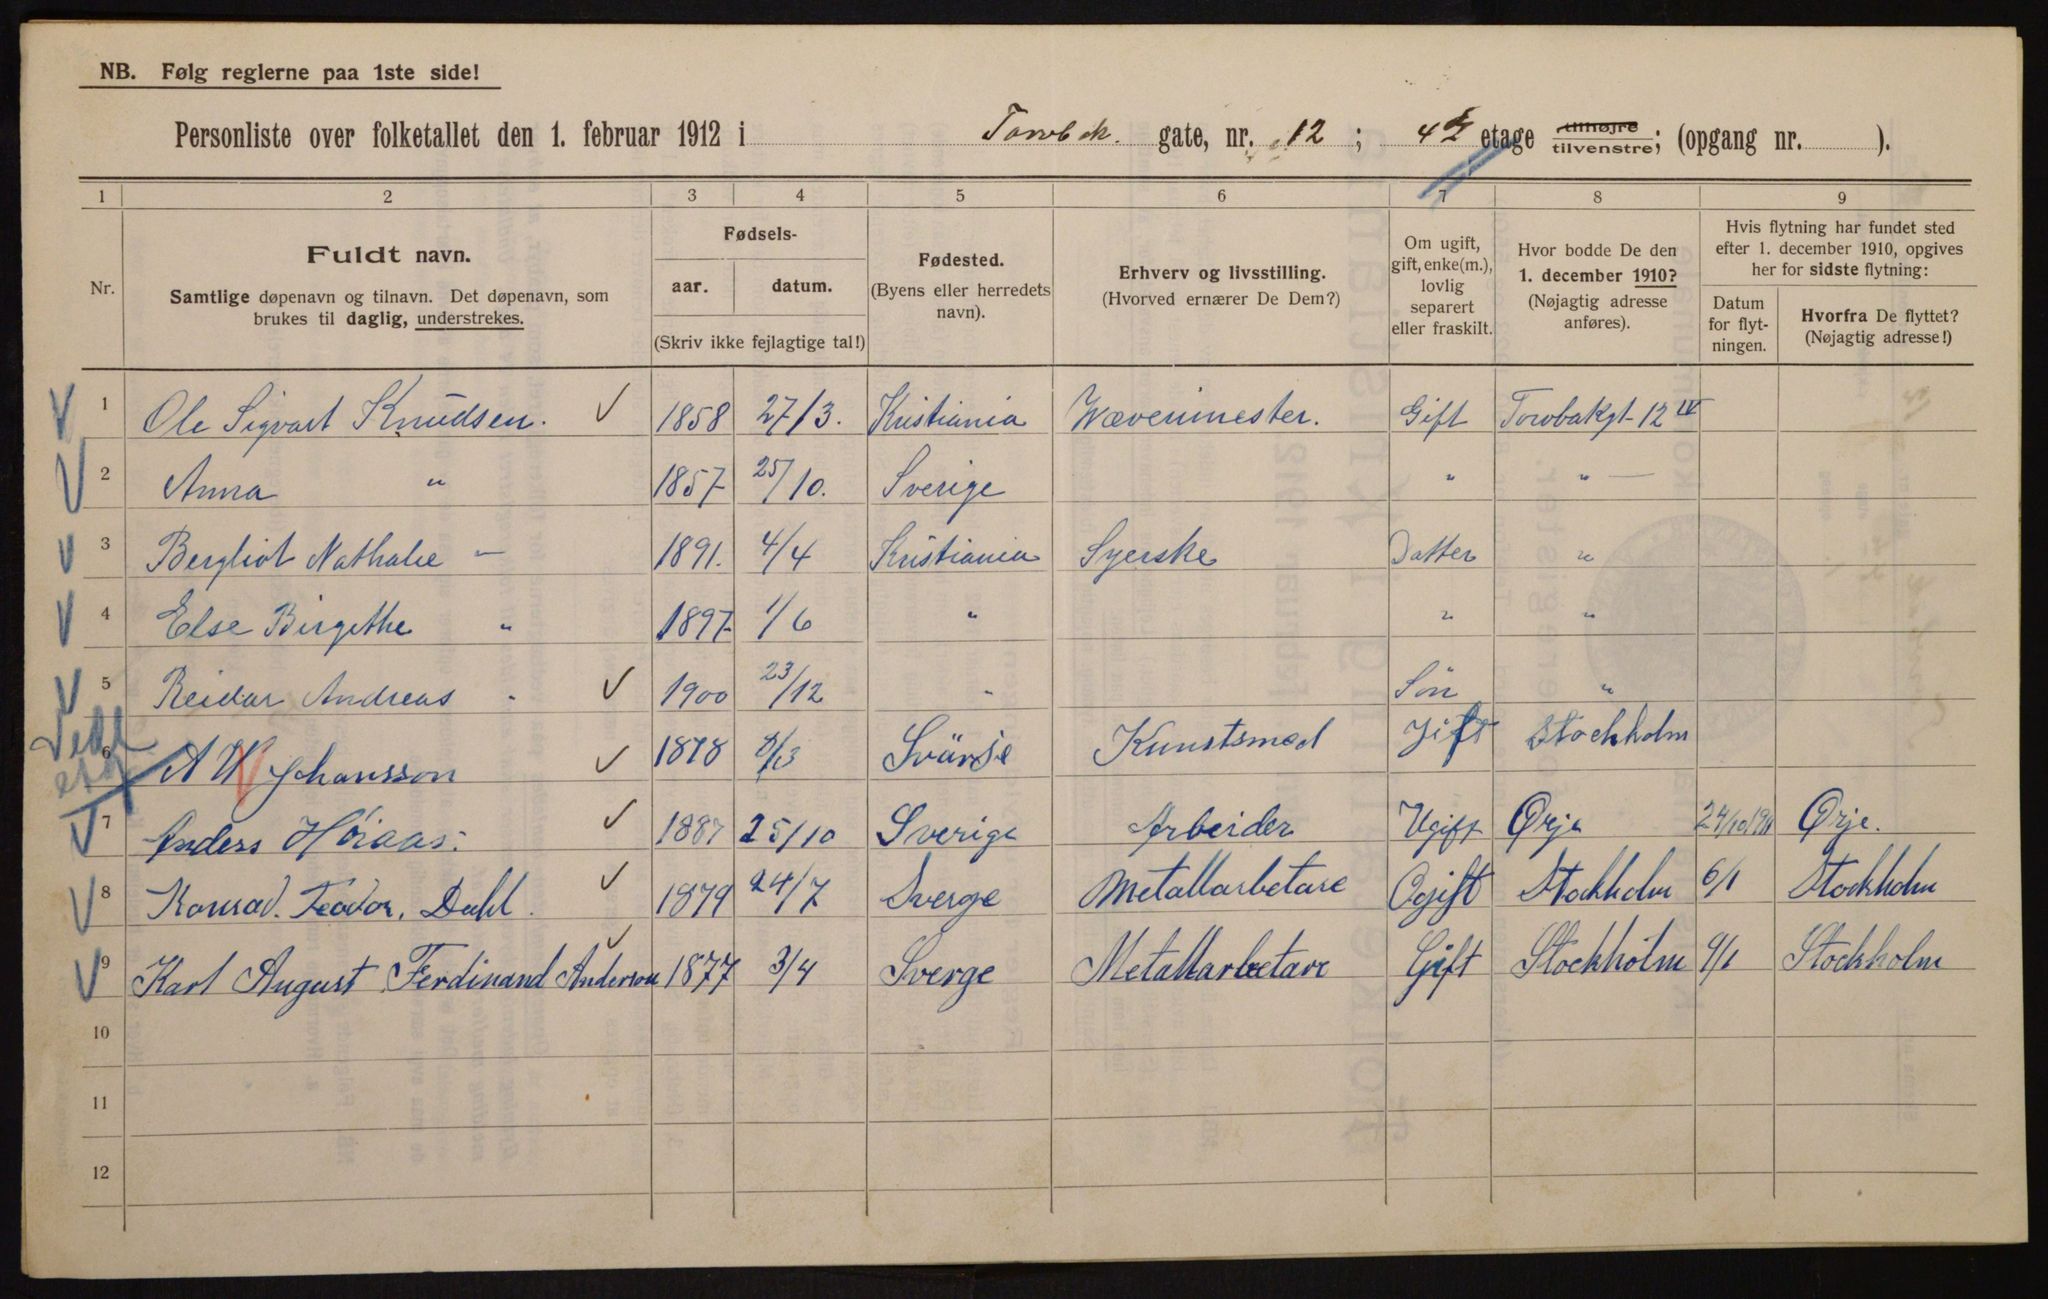 NB. Følg reglerne paa 1ste side!
Personliste over folketallet den 1. februar 1912 i Torvbak. gate, nr. 12 ; 4d etage tilhøjre tilvenstre; (opgang nr. ).
1 2 3 4 5 6 7 8 9
Nr.
Fuldt navn.
Samtlige døpenavn og tilnavn. Det døpenavn, som
brukes til daglig, understrekes.
Fødsels-
aar. datum.
(Skriv ikke fejlagtige tal!)
Fødested.
(Byens eller herredets
navn).
Erhverv og livsstilling.
(Hvorved ernærer De Dem?)
Om ugift,
gift, enke(m.),
lovlig
separert
eller fraskilt.
Hvor bodde De den
1. december 1910?
(Nøjagtig adresse
anføres).
Hvis flytning har fundet sted
efter 1. december 1910, opgives
her for sidste flytning:
Datum
for flyt-
ningen.
Hvorfra De flyttet?
(Nøjagtig adresse!)
1 Ole Sigvart Knudsen. 1858 27/3. Kristiania Wævermester. Gift Torvbakgt-12 IV
2 Anna " 1857 25/10. Sverige " " —
3 Bergliot Nathalie — 1891. 4/4 Kristiania Syerske Datter "
4 Else Birgithe " 1897 1/6 " " "
5 Reidar Andreas " 1900 23/12 " Sön "
6 A W Johansson 1878 8/3 Svärje Kunstsmed Gift Stockholm
7 Anders Höiaas. 1887 25/10 Sverige Arbeider Ugift Ørje 24/10 1911 Ørje.
8 Konrad. Teodor. Dahl. 1879 24/7 Sverge Metallarbetare Ogift Stockholm 6/1 Stockholm
9 Karl August Ferdinand Anderson 1877 3/4 Sverge Metallarbetare Gift Stockholm 9/1 Stockholm
10
11
12